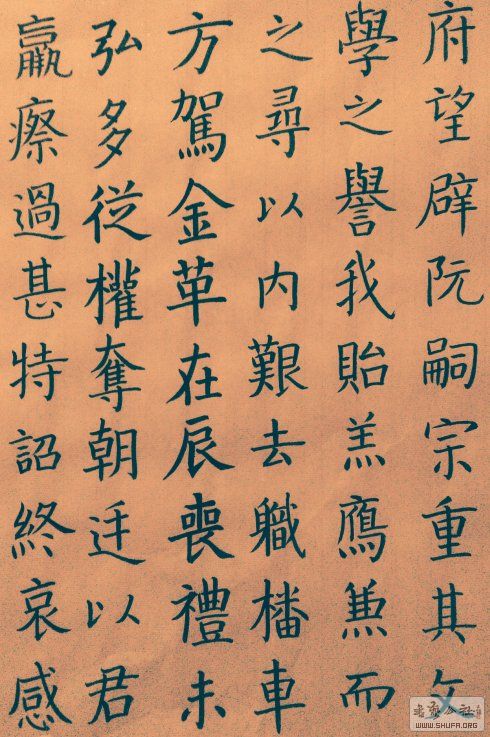 府望辟阮嗣宗重其文
學之譽我貽羔鴈兼而
之尋以内艱去職橎車
方駕金革在辰喪禮未
弘多從權奪朝廷以君
羸瘵過甚特詔終哀感
书艺公社
WWW.SHUFA.ORG